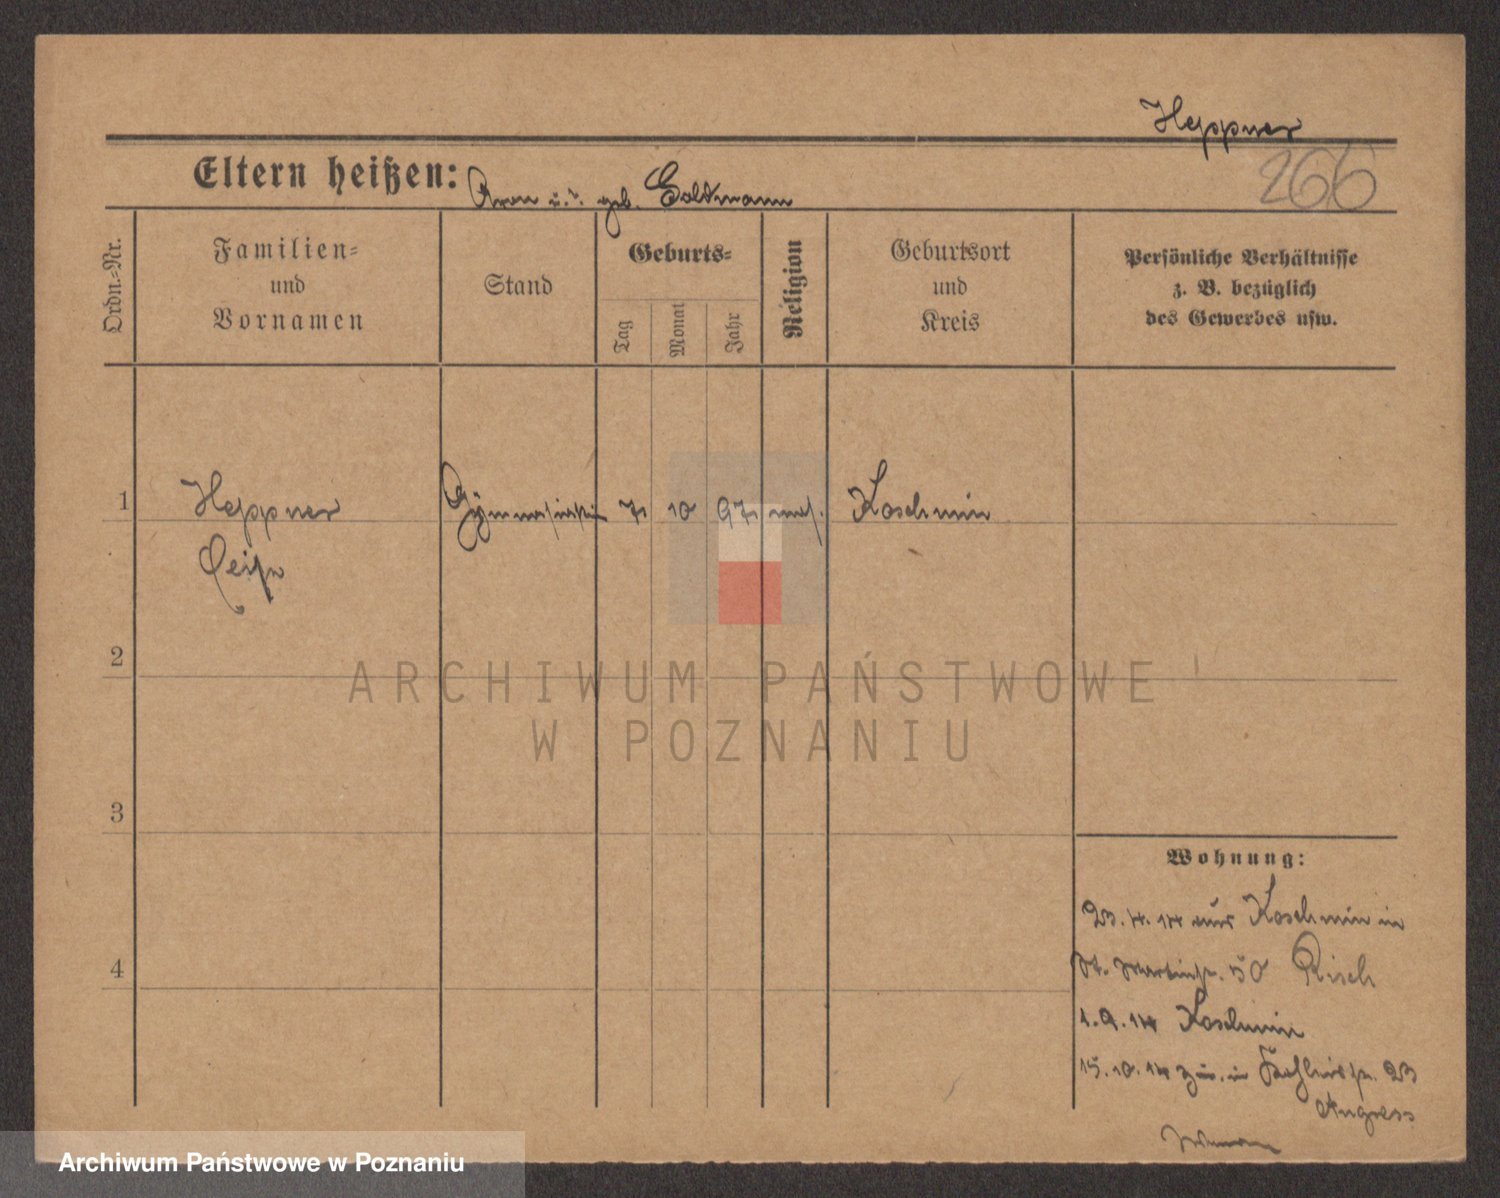 Heppner
266
Eltern heißen: Aron u. geb. Goldmann
Ordn.-Nr.
Familien-
und
Vornamen
Stand
Geburts-
Tag
Monat
Jahr
Religion
Geburtsort
und
Kreis
Persönliche Verhältnisse
z. B. bezüglich
des Gewerbes usw.
1
Heppner
Gymnasiastin 7 10 97 mos. Koschmin
2
ARCHIWUM PAŃSTWOWE
W POZNANIU
3
Wohnung:
23.4.14 aus Koschmin in
St. Martinstr. 50 Risch
4
1.9.14 Koschmin
15.10.14 zur. in 23
Angress
Archiwum Państwowe w Poznaniu